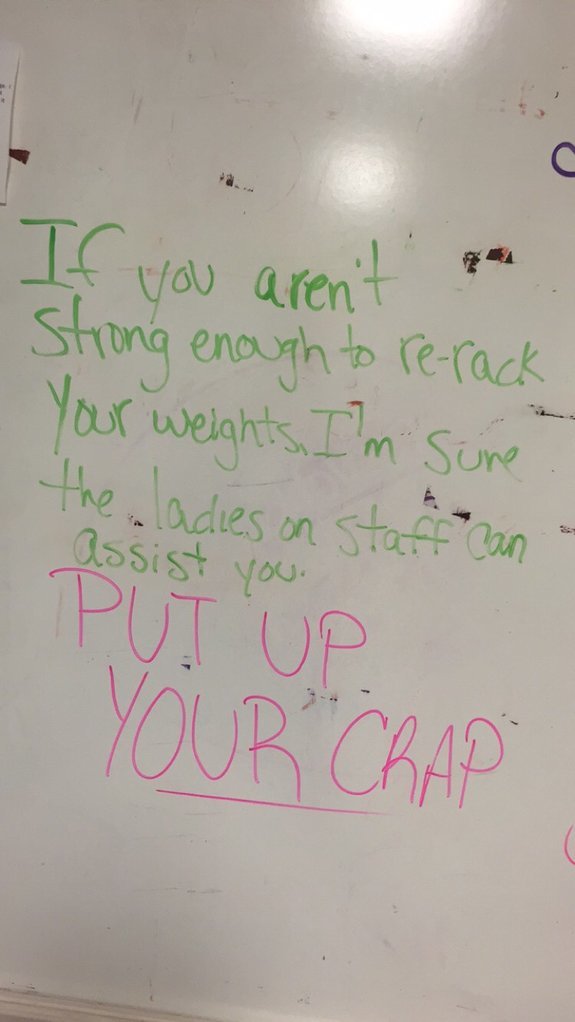 If you aren't
strong enough to re-rack
your weights, I'm sure
the ladies on staff can
assist you.
PUT UP
YOUR CRAP